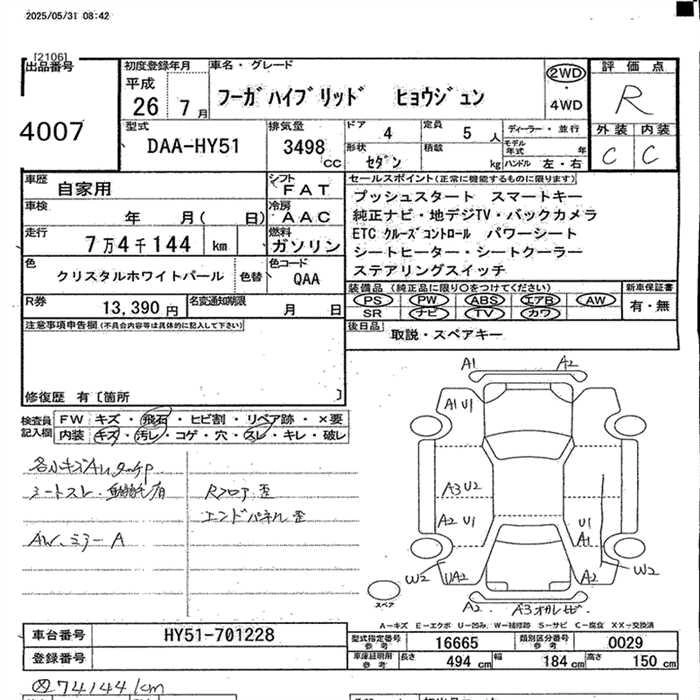 2025/05/31 08:42
[2106]
出品番号
4007
初度登録年月
平成
26 7月
車名・グレード
フーガハイブリッド ヒョウジュン
2WD
・
4WD
評価点
R
外装 内装
C C
型式
DAA-HY51
排気量
3498 cc
ドア 4
定員 5 人
形状 セダン
積載 kg
ディーラー・並行
モデル年式 年
ハンドル 左・右
車歴
自家用
シフト
FAT
車検
年 月( 日)
冷房
AAC
走行
7万4千144 km
燃料
ガソリン
色
クリスタルホワイトパール
色替
色コード
QAA
R券
13,390円
名変通知期限
月 日
セールスポイント(正常に機能するものに限ります)
プッシュスタート スマートキー
純正ナビ・地デジTV・バックカメラ
ETC クルーズコントロール パワーシート
シートヒーター・シートクーラー
ステアリングスイッチ
装備品 (純正品に限り○をつけてください)
PS PW ABS エアB AW
SR ナビ TV カワ
新車保証書
有・無
後日品
取説・スペアキー
注意事項申告欄(不具合内容等は具体的に記入して下さい)
修復歴 有〔箇所 〕
検査員記入欄
FW キズ・飛石・ヒビ割・リペア跡・×要
内装 キズ・汚レ・コゲ・穴・スレ・キレ・破レ
シートスレ・
Rフロア 歪
エンドパネル歪
AW、ミラーA
A1 A2
A1 U1
A3 U2
A2 U1
U1
A1
W2 UA2
A2 W2
A2 A3
スペア
A-キズ E-エクボ U-凹み W-補修跡 S-サビ C-腐食 XX-交換済
車台番号
HY51-701228
登録番号
型式指定番号
参考
16665
類別区分番号
参考
0029
車庫証明用
参考
長さ 494 cm
幅 184 cm
高さ 150 cm
74144km